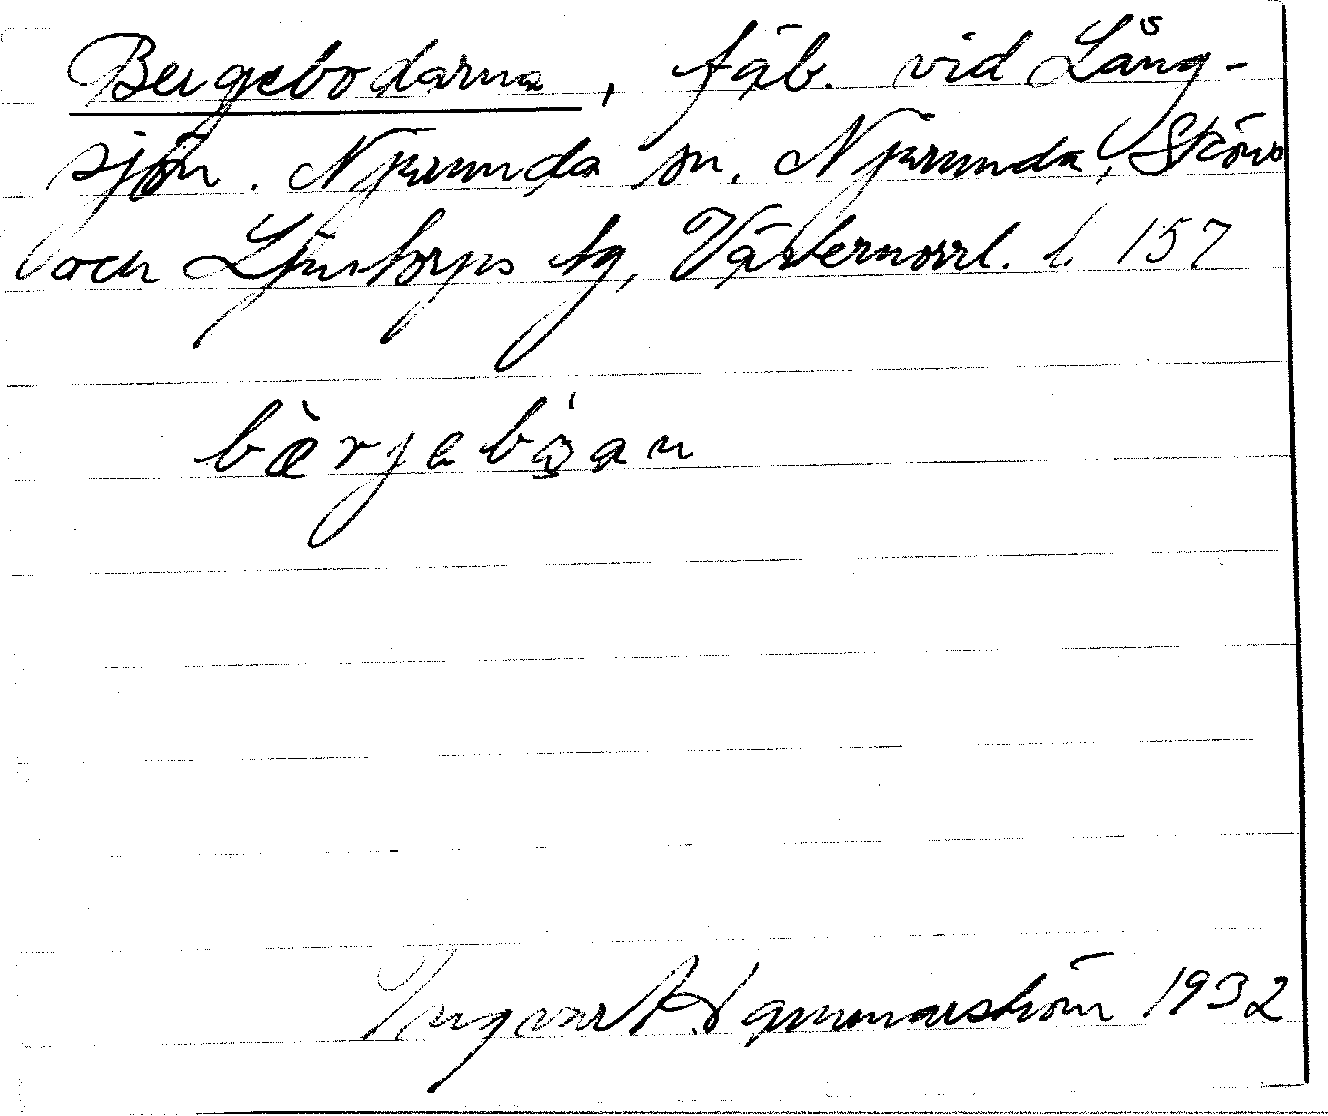 Bergebodarna, fäb. vid Lång-
sjön. Njurunda sn. Njurunda, Sköns
och Ljustorps tg, Västernorrl. l. 157
bæ̀rjebò̤an
Ingvar Hammarström 1932